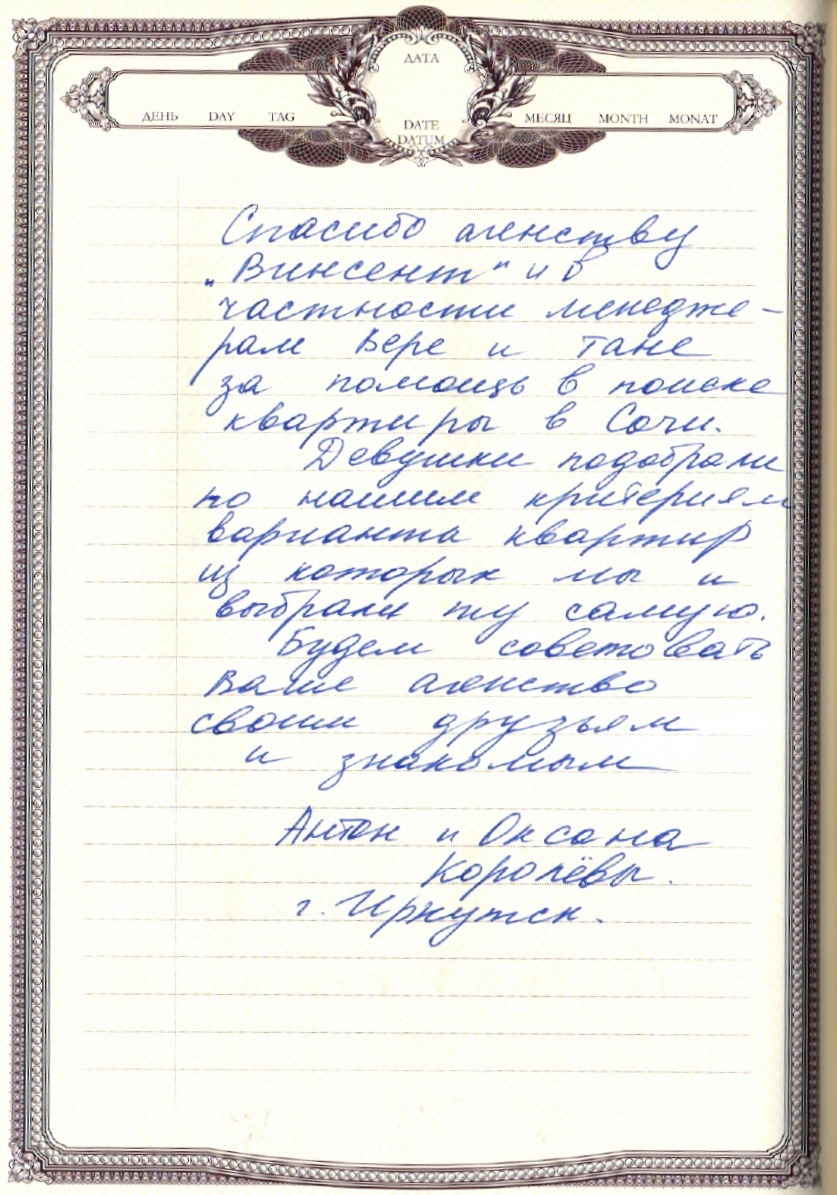 ДАТА
ДЕНЬ DAY TAG
DATE
МЕСЯЦ MONTH MONAT
DATUM
Спасибо агенству
„Винсент" и в
частности менедже-
рам Вере и Тане
за помощь в поиске
квартиры в Сочи.
Девушки подобрали
по нашим критериям
варианта квартир
из которых мы и
выбрали ту самую.
Будем советовать
Ваше агенство
своим друзьям
и знакомым
Антон и Оксана
Королёвы.
г. Иркутск.